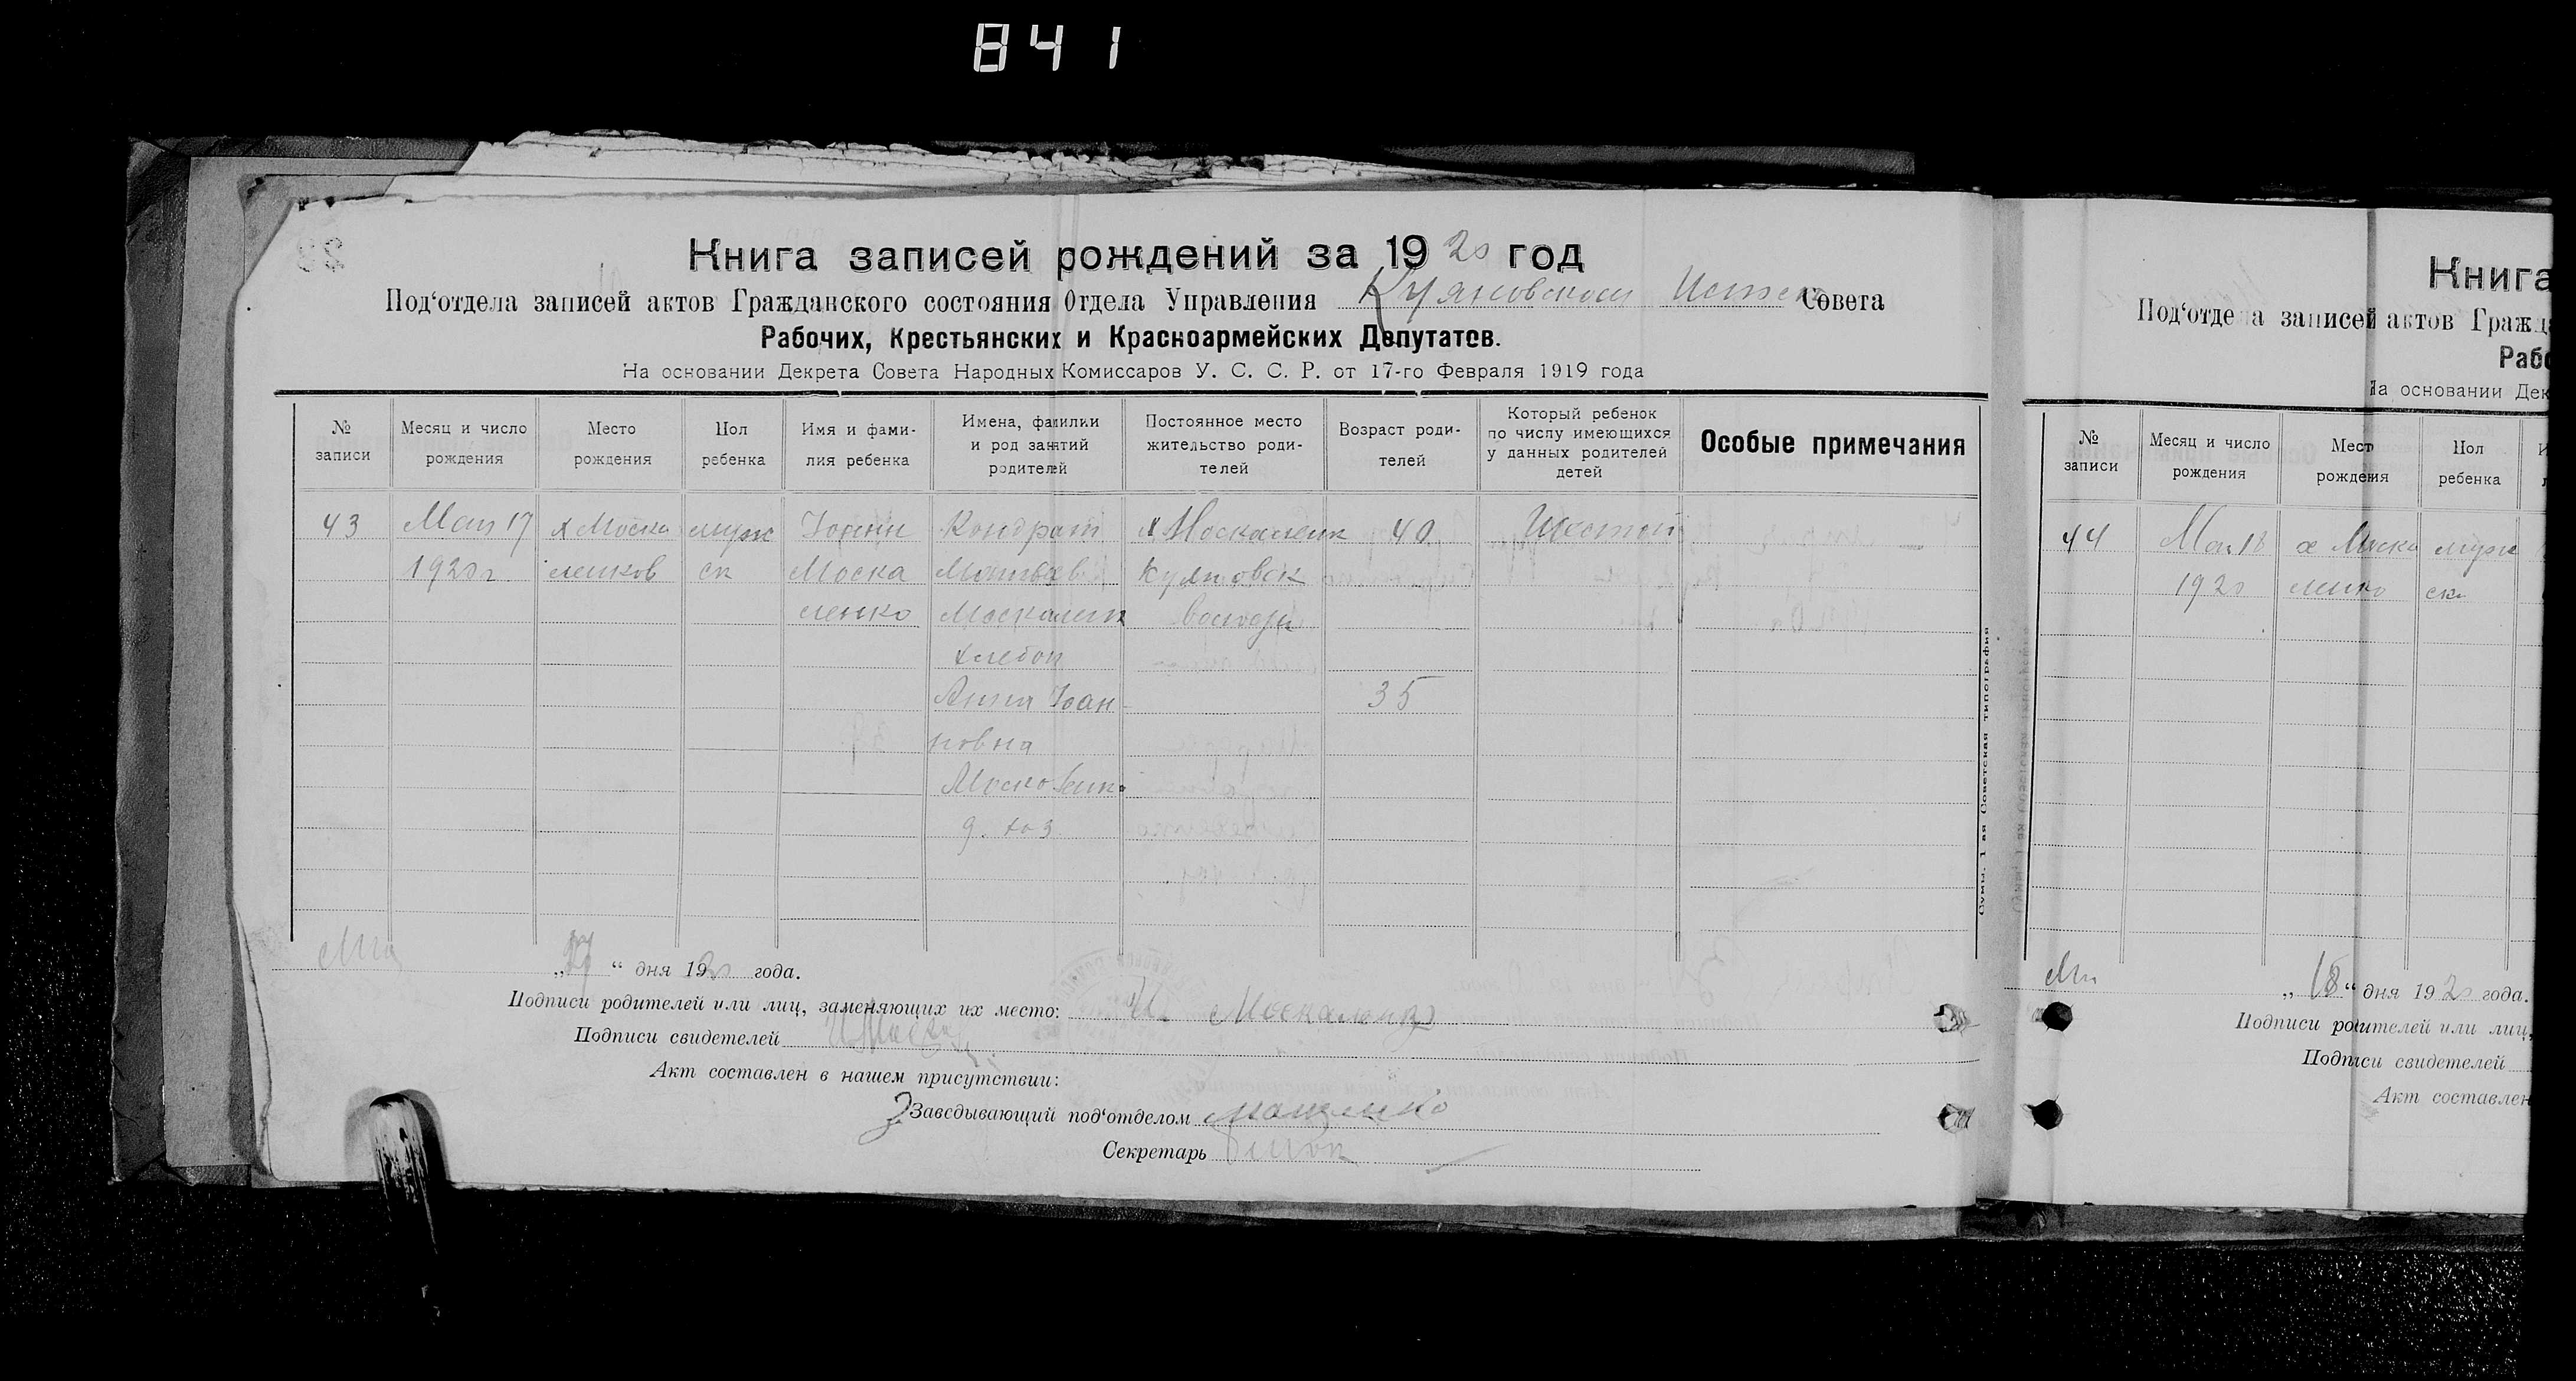 841
Книга записей рождений за 1920 год
Под'отдела записей актов Гражданского состояния Отдела Управления Кияновской Совета
Рабочих, Крестьянских и Красноармейских Депутатов.
На основании Декрета Совета Народных Комиссаров У. С. С. Р. от 17-го Февраля 1919 года
№ записи
Месяц и число рождения
Место рождения
Пол ребенка
Имя и фами-
лия ребенка
Имена, фамилии
и род занятий
родителей
Постоянное место
жительство роди-
телей
Возраст роди-
телей
Который ребенок
по числу имеющихся
у данных родителей
детей
Особые примечания
43 Мая 17 х Моска муж Иоанн Кондрат х Москаленк 40 Шестой
1920 г. ленков ск Моска Матвеев
ленко Москаленк
хлебоп
Анна Иоан 35
новна
д. хоз
Мая „17“ дня 1920 года.
Подписи родителей или лиц, заменяющих их место: И. Москаленко
Подписи свидетелей
Акт составлен в нашем присутствии:
Заведывающий под'отделом
Секретарь
Сумы. 1-ая Советская типография
Книга
Под'отдела записей актов Гражд
Рабо
На основании Дек
№ записи
Месяц и число рождения
Место рождения
Пол ребенка
44 Мая 18 х Моска муж
1920 ленко ск
„18“ дня 1920 года.
Подписи родителей или лиц,
Подписи свидетелей
Акт составлен